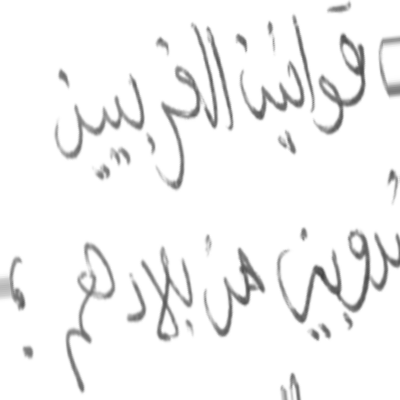 قوانين الغربيين
من بلادهم ؟